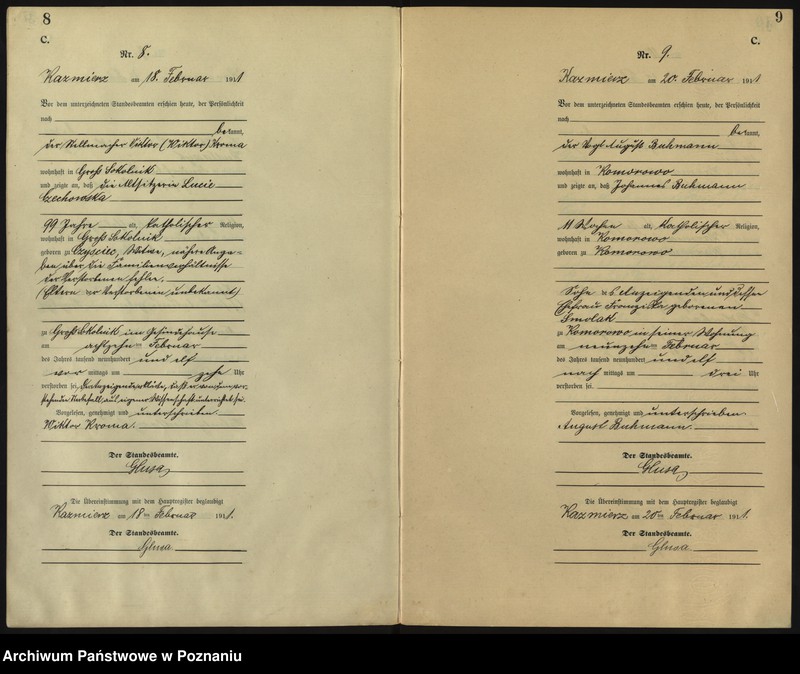 8
C.
Nr. 8.
Kazmierz am 18. Februar 1911
Vor dem unterzeichneten Standesbeamten erschien heute, der Persönlichkeit
nach
bekannt,
der Stellmacher Victor (Wiktor) Kroma
wohnhaft in Groß Sokolnik
und zeigte an, daß die Altsitzerin Lucie
Czechowska
99 Jahre alt, katholischer Religion,
wohnhaft in Groß Sokolnik
geboren zu Czyściec, Witwe, nähere Anga-
ben über die Familienverhältnisse
der Verstorbenen fehlen.
(Eltern der Verstorbenen unbekannt)
zu Groß Sokolnik im Gesindehause
am achtzehn ten Februar
des Jahres tausend neunhundert und elf
vor mittags um zehn Uhr
verstorben sei, Anzeigender erklärte, daß er von dem vor-
stehenden Sterbefall aus eigener Wissenschaft unterrichtet sei.
Vorgelesen, genehmigt und unterschrieben
Wiktor Kroma.
Der Standesbeamte.
Glusa
Die Übereinstimmung mit dem Hauptregister beglaubigt
Kazmierz am 18ten Februar 1911.
Der Standesbeamte.
Glusa
9
C.
Nr. 9.
Kazmierz am 20. Februar 1911
Vor dem unterzeichneten Standesbeamten erschien heute, der Persönlichkeit
nach
bekannt,
der Vogt August Buhmann
wohnhaft in Komorowo
und zeigte an, daß Johannes Buhmann
11 Wochen alt, katholischer Religion,
wohnhaft in Komorowo
geboren zu Komorowo
Sohn des Anzeigenden und dessen
Ehefrau Franziska geborenen
Smolak
zu Komorowo in seiner Wohnung
am neunzehn ten Februar
des Jahres tausend neunhundert und elf
nach mittags um drei Uhr
verstorben sei.
Vorgelesen, genehmigt und unterschrieben
August Buhmann.
Der Standesbeamte.
Glusa
Die Übereinstimmung mit dem Hauptregister beglaubigt
Kazmierz am 20ten Februar 1911.
Der Standesbeamte.
Glusa
Archiwum Państwowe w Poznaniu